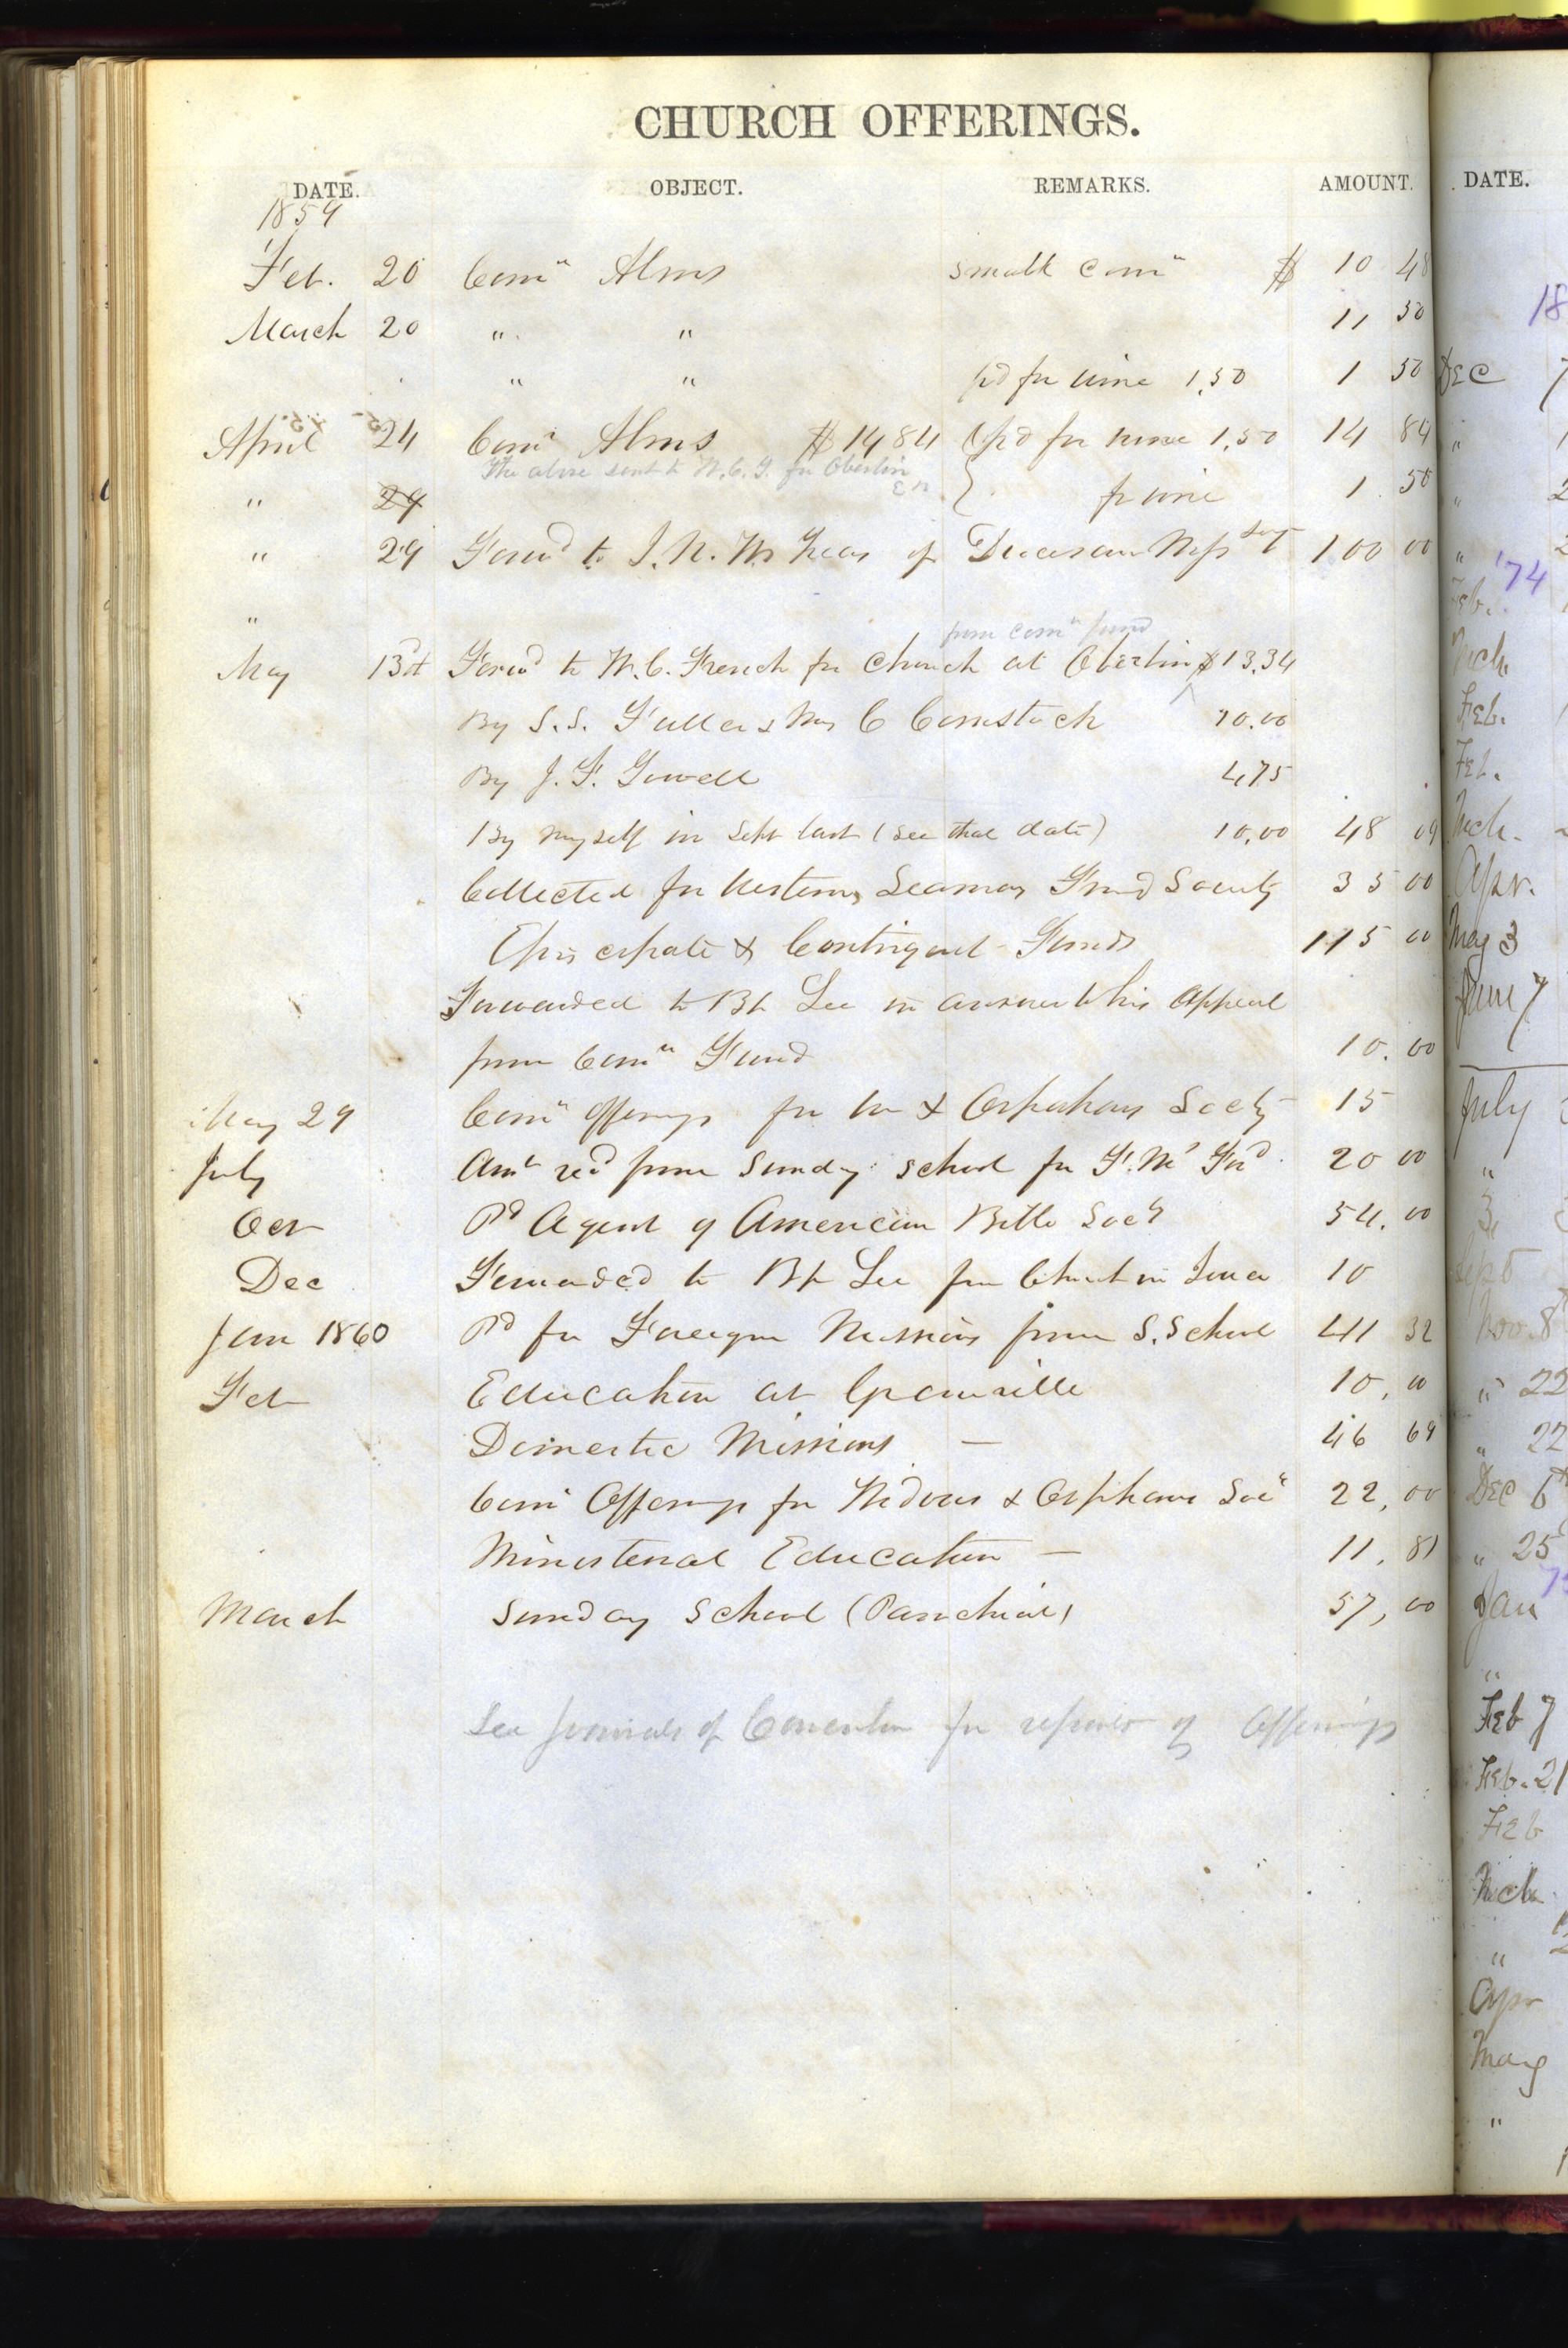 CHURCH OFFERINGS.
DATE. OBJECT. REMARKS. AMOUNT.
1859
Feb. 20 Comn Alms small comn $ 10 48
March 20 " " 11 50
" " pd for wine 1,50 1 50
April 24 Comn Alms $ 14 84 (pd for wine 1,50 14 84
The above sent to W. C. F. for Oberlin
" 29 for wine 1 50
" 29 Forwd to J. N. W. Treas of Diocesan Miss Soct 100 00
"
from comn fund
May 13th Forwd to W. C. French for Church at Oberlin $13.34
By S. S. Fuller & Mrs C Comstock 20.00
By J. F. Gowell 4,75
By myself in Sept last (see that date) 10,00 48 09
Collected for Western Seamans Frnd Society 35 00
Episcopate & Contingent Funds 115 00
Forwarded to Bp Lee in answer to his Appeal
from Comn Fund 10.00
May 29 Comn offerings for W & Orphans Socty 15
July Amt recd from Sunday school for F. M. 20 00
Oct Pd Agent of American Bible Socy 54.00
Dec Forwarded to Bp Lee for Church in Iowa 10
Jan 1860 Pd for Foreign Missions from S. School 41 32
Feb Education at Granville 10,00
Domestic Missions — 46 69
Comn Offerings for Widows & Orphans Soc 22,00
Ministerial Education — 11,81
March Sunday School (Parochial) 57,00
See Journals of Convention for reports of Offerings
DATE.
18
Dec 7
"
" 2
" 2
'74
Feb.
Mch.
Feb.
Feb.
Mch.
Apr.
May 3
June 7
July
"
Sept
Nov. 8
" 22
" 22
Dec 6th
" 25
Jan
"
Feb 7
Feb. 21
Feb
Mch
"
Apr
May
"